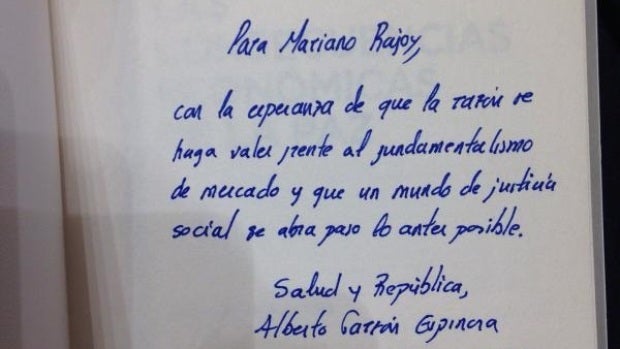 Para Mariano Rajoy,
con la esperanza de que la razón se
haga valer frente al fundamentalismo
de mercado y que un mundo de justicia
social se abra paso lo antes posible.
Salud y República,
Alberto Garzón Espinosa